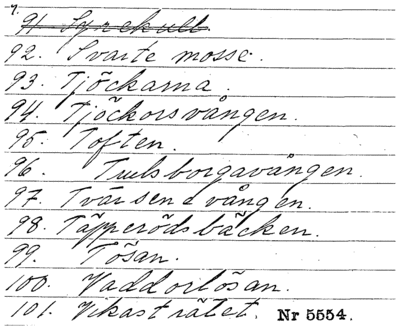 7.
91 Syrekull
92. Svarte mosse.
93. Tjöckarna
94. Tjöckorsvången.
95. Toften.
96. Tuelsborgavången.
97. Tvärsendvången.
98. Täpperödsbäcken.
99. Tösan.
100. Vaddorlösan.
101. Vikasträtet. Nr 5554.